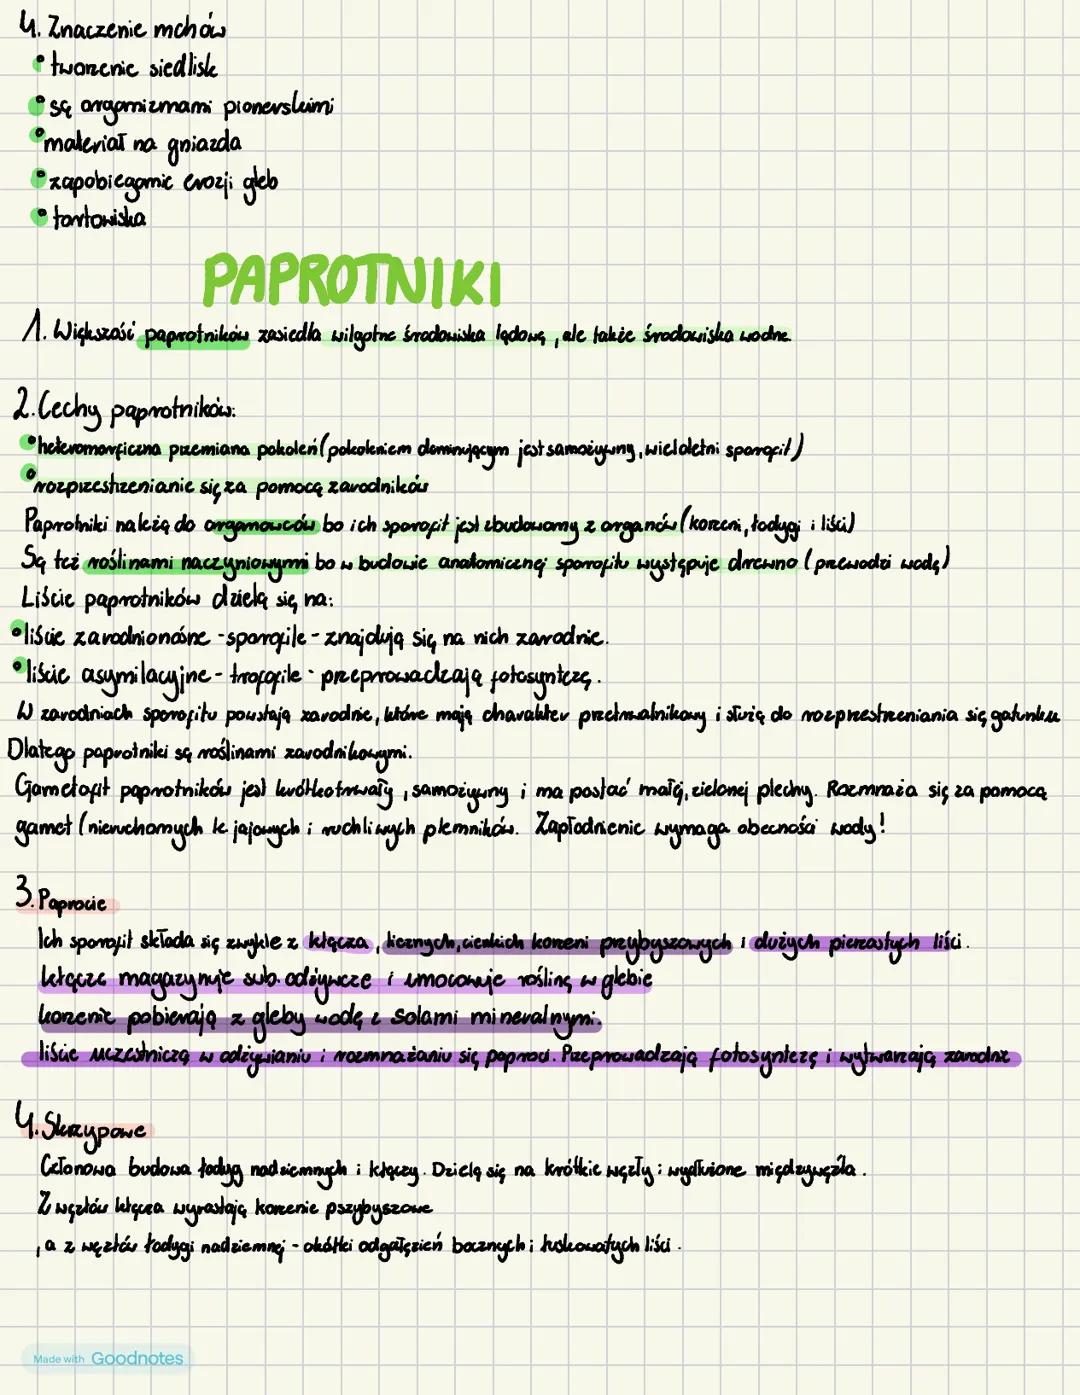 4. Znaczenie mchów
• tworzenie siedlisk
• są organizmami pionerskimi
• materiał na gniazda
• zapobieganie erozji gleb
• torfowiska
PAPROTNIKI
1. Większość paprotników zasiedla wilgotne środowiska lądowe, ale także środowiska wodne.
2. Cechy paprotników:
• heteromorficzna przemiana pokoleń (pokoleniem dominującym jest samożywny, wieloletni sporofit)
• rozprzestrzenianie się za pomocą zarodników
Paprotniki należą do organowców bo ich sporofit jest zbudowany z organów (korzeni, łodygi i liści)
Są też roślinami naczyniowymi bo w budowie anatomicznej sporofitu występuje drewno (przewodzi wodę)
Liście paprotników dzielą się na:
• liście zarodnionośne - sporofile - znajdują się na nich zarodnie.
• liście asymilacyjne - trofofile - przeprowadzają fotosyntezę.
W zarodniach sporofitu powstają zarodnie, które mają charakter przetrwalnikowy i służą do rozprzestrzeniania się gatunku
Dlatego paprotniki są roślinami zarodnikowymi.
Gametofit paprotników jest krótkotrwały, samożywny i ma postać małej, zielonej plechy. Rozmnaża się za pomocą
gamet (nieruchomych k. jajowych i ruchliwych plemników. Zapłodnienie wymaga obecności wody!
3. Paprocie
Ich sporofit składa się zwykle z kłącza, licznych, cienkich korzeni przybyszowych i dużych pierzastych liści.
kłącze magazynuje sub. odżywcze i umocowuje roślinę w glebie
korzenie pobierają z gleby wodę z solami mineralnymi.
liście uczestniczą w odżywianiu i rozmnażaniu się paproci. Przeprowadzają fotosyntezę i wytwarzają zarodnie
4. Skrzypowe
Członowa budowa łodyg nadziemnych i kłączy. Dzielą się na krótkie węzły i wydłużone międzywęźla.
Z węzłów kłącza wyrastają korzenie pszybyszowe
, a z węzłów łodygi nadziemnej - okółki odgałęzień bocznych i łuskowatych liści.
Made with Goodnotes